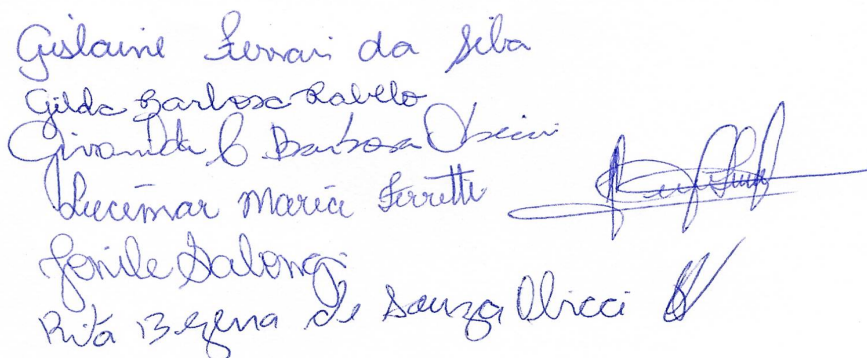 Gislaine Ferrari da Silva
Gilda Barbosa Rabello
Givanilda C Barbosa Obicci
Lucemar Maria Ferretti
Salongi
Rita Bezerra de Souza Obicci